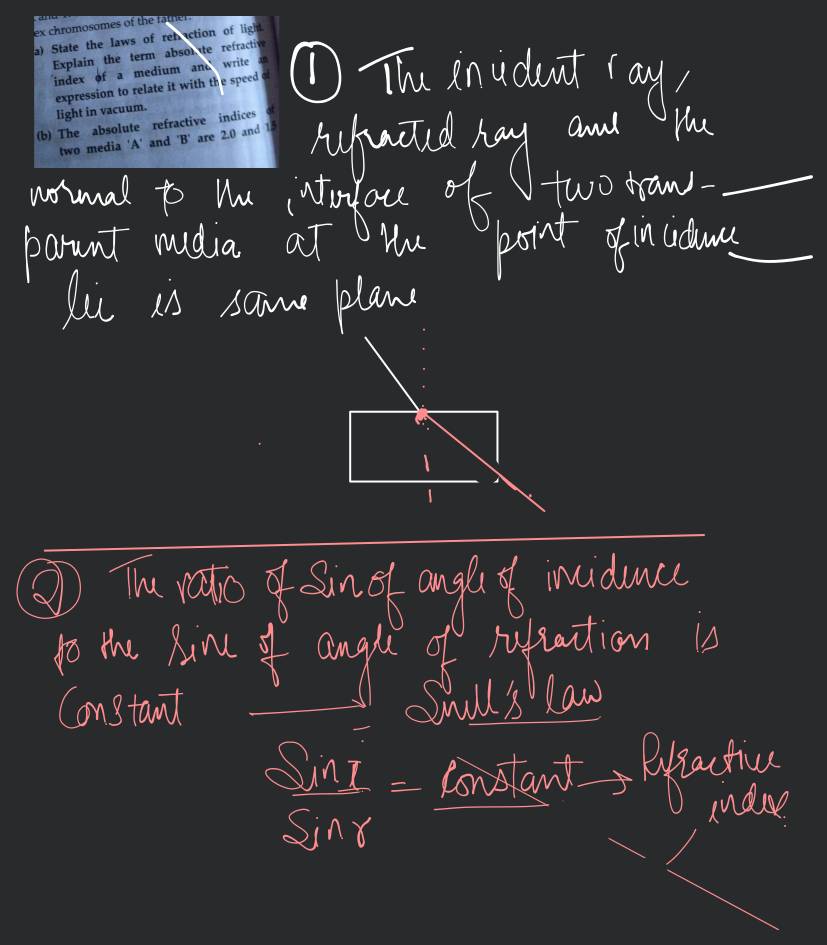 ex chromosomes of the father.
a) State the laws of refraction of light.
Explain the term absolute refractive
index of a medium and write an
expression to relate it with the speed of
light in vacuum.
(b) The absolute refractive indices of
two media 'A' and 'B' are 2.0 and 1.5
① The incident ray,
refracted ray and the
normal to the interface of two trans-
parent media at the point of incidence
lie is same plane
② The ratio of Sin of angle of incidence
to the Sine of angle of refraction is
Constant → Snell's law
Sin I
= Constant → Refractive
index.
Sin r